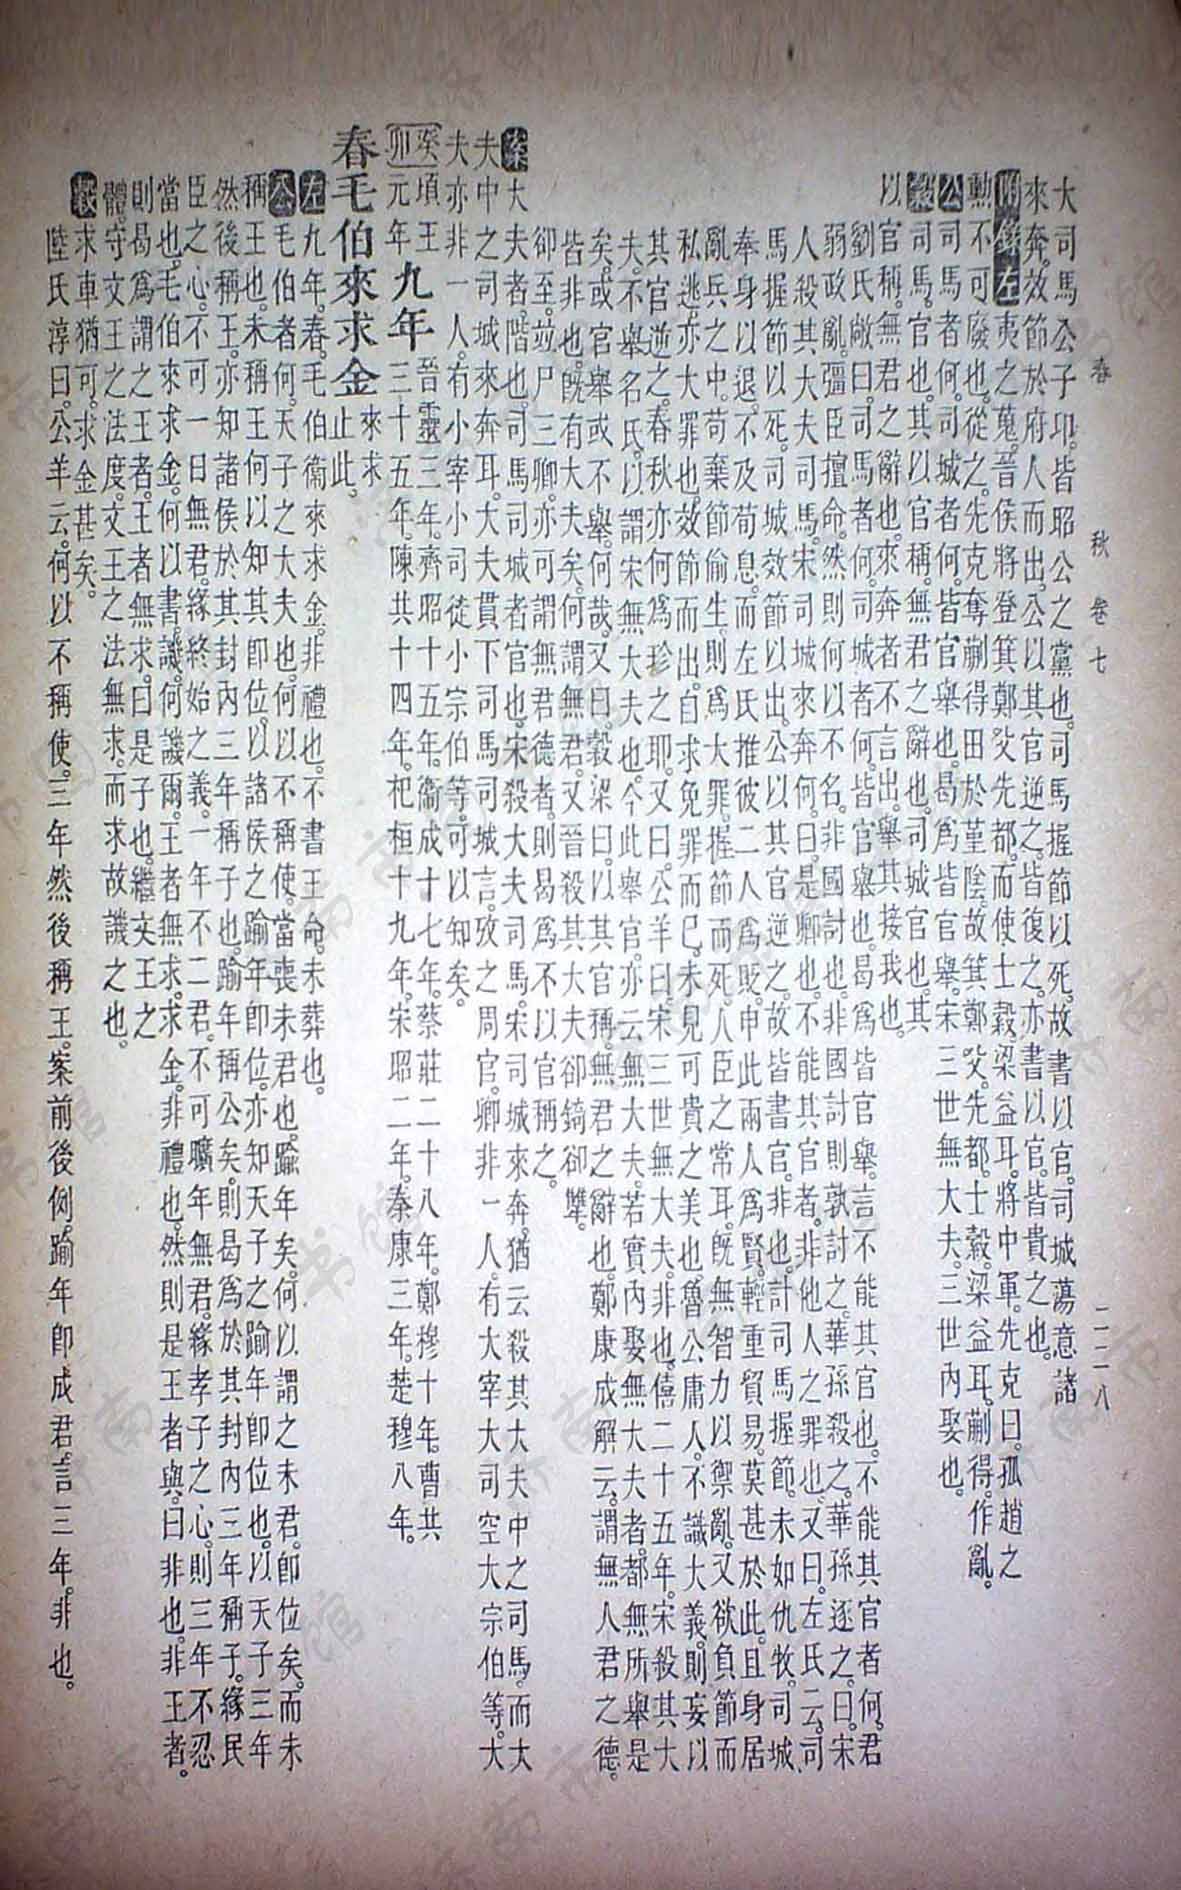 春　秋　卷七　二二八
大司馬公子卬。皆昭公之黨也。司馬握節以死。故書以官。司城蕩意諸
來奔。效節於府人而出。公以其官逆之。皆復之。亦書以官。皆貴之也。
附錄左夷之蒐。晉侯將登箕鄭父先都。而使士縠。梁益耳將中軍。先克曰。狐趙之
勳不可廢也。從之。先克奪蒯得田於堇陰。故箕鄭父。先都。士縠。梁益耳。蒯得。作亂。
公司馬者何。司城者何。皆官舉也。曷爲皆官舉。宋三世無大夫。三世內娶也。
穀司馬官也。其以官稱。無君之辭也。司城官也。其
以官稱。無君之辭也。來奔者不言出。舉其接我也。
劉氏敞曰。司馬者何。司城者何。皆官舉也。曷爲皆官舉。言不能其官也。不能其官者何。君
弱政亂。彊臣擅命。然則何以不名。非國討也。非國討則孰討之。華孫殺之。華孫逐之。曰。宋
人殺其大夫司馬。宋司城來奔何。曰。是卿也。不能其官者。非他人之罪也。又曰。左氏云。司
馬握節以死。司城效節以出。公以其官逆之。故皆書官。非也。計司馬握節。未如仇牧。司城
奉身以退。不及荀息。而左氏推彼二人爲貶。申此兩人爲賢。輕重貿易。莫甚於此。且身居
亂兵之中。苟棄節偷生。則爲大罪。握節而死。人臣之常耳。旣無智力以禦亂。又欲負節而
私逃。亦大罪也。效節而出。自求免罪而已。未見可貴之美也。魯公庸人。不識大義。則妄以
其官逆之。春秋亦何爲珍之耶。又曰。公羊曰。宋三世無大夫。非也。僖二十五年。宋殺其大
夫。不舉名氏。以謂宋無大夫也。今此舉官。亦云無大夫。若實內娶無大夫者。都無所舉是
矣。或官舉或不舉。何哉。又曰。穀梁曰。以其官稱。無君之辭也。鄭康成解云。謂無人君之德。
皆非也。旣有大夫矣。何謂無君。又晉殺其大夫卻錡卻犨。
卻至。竝尸三卿。亦可謂無君德者。則曷爲不以官稱之。
案大夫者。階也。司馬司城者。官也。宋殺大夫司馬。宋司城來奔。猶云殺其大夫中之司馬。而大
夫中之司城來奔耳。大夫貫下司馬司城言。攷之周官。卿非一人。有大宰大司空大宗伯等。大
夫亦非一人。有小宰小司徒小宗伯等。可以知矣。
癸卯頃王元年九年晉靈三年。齊昭十五年。衞成十七年。蔡莊二十八年。鄭穆十年。曹共
三十五年。陳共十四年。杞桓十九年。宋昭二年。秦康三年。楚穆八年。
春毛伯來求金來求止此。
左九年。春。毛伯衞來求金。非禮也。不書王命。未葬也。
公毛伯者何。天子之大夫也。何以不稱使。當喪未君也。踰年矣。何以謂之未君。卽位矣。而未
稱王也。未稱王何以知其卽位。以諸侯之踰年卽位。亦知天子之踰年卽位也。以天子三年
然後稱王。亦知諸侯於其封內三年稱子也。踰年稱公矣。則曷爲於其封內三年稱子。緣民
臣之心。不可一日無君。緣終始之義。一年不二君。不可曠年無君。緣孝子之心。則三年不忍
當也。毛伯來求金。何以書。譏。何譏爾。王者無求。求金。非禮也。然則是王者與。曰。非也。非王者。
則曷爲謂之王者。王者無求。曰。是子也。繼文王之
體。守文王之法度。文王之法無求。而求。故譏之也。
穀求車猶可。求金甚矣。
陸氏淳曰。公羊云。何以不稱使。三年然後稱王。案前後例。踰年卽成君。言三年。非也。